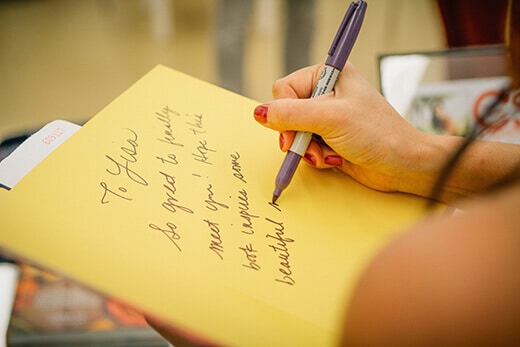 To Lisa
So great to finally
meet you! Hope this
book inspires some
beautiful